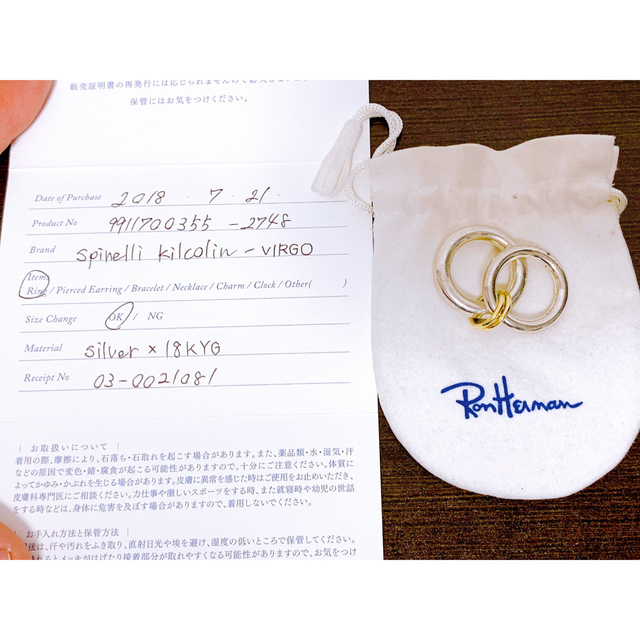 販売証明書の再発行には応じられませんので
保管にはお気をつけください。
Date of Purchase 2018 . 7 . 21 .
Product No 9911700355 - 2748
Brand spinelli kilcolin - VIRGO
Item
Ring / Pierced Earring / Bracelet / Necklace / Charm / Clock / Other( )
Size Change OK / NG
Material silver × 18KYG
Receipt No 03-0021081
| お取扱いについて |
着用の際、摩擦により、石落ち・石取れを起こす場合があります。また、薬品類・水・湿気・汗
などの原因で変色・錆・腐食が起こる可能性がありますので、十分にご注意ください。体質に
よってかゆみ・かぶれを生じる場合があります。皮膚に異常を感じた時はご使用をお止めいただき、
皮膚科専門医にご相談ください。力仕事や激しいスポーツをする時、また就寝時や幼児の世話
をする時などは、身体に危害を及ぼす場合がありますので、着用しないでください。
| お手入れ方法と保管方法 |
後は、汗や汚れをふき取り、直射日光や埃を避け、湿度の低いところで保管してください。
れるとメッキがはげたり接着部分が取れやすくなる可能性がありますので、お気をつけ
Ron Herman